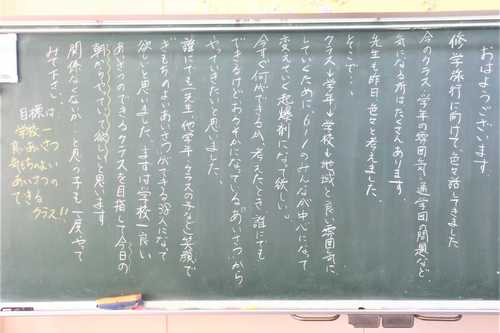 おはようございます。
修学旅行に向けて、色々話してきました
今のクラス、学年の雰囲気、通学団の問題など、
気になる所はたくさんあります。
先生も昨日色々と考えました。
そこで…
クラス↓学年↓学校↓地域と良い雰囲気に
していくために、6/1のみんなが中心になって
変えていく起爆剤になって欲しい。
今すぐ何ができるか、考えたとき、誰にでも
できるけどおろそかになっている"あいさつ"から
やっていきたいと思いました。
誰にでも(先生、他学年、クラスの子など)笑顔で
きもちのよいあいさつができる姿になって
欲しいと思いました。まずは学校一良い
あいさつのできるクラスを目指して今日の
朝からやっていって欲しいと思います
関係なくないか…と思う子も一度やって
みて下さい。
目標は
学校一
良いあいさつ
気もちのよい
あいさつの
できる
クラス!!